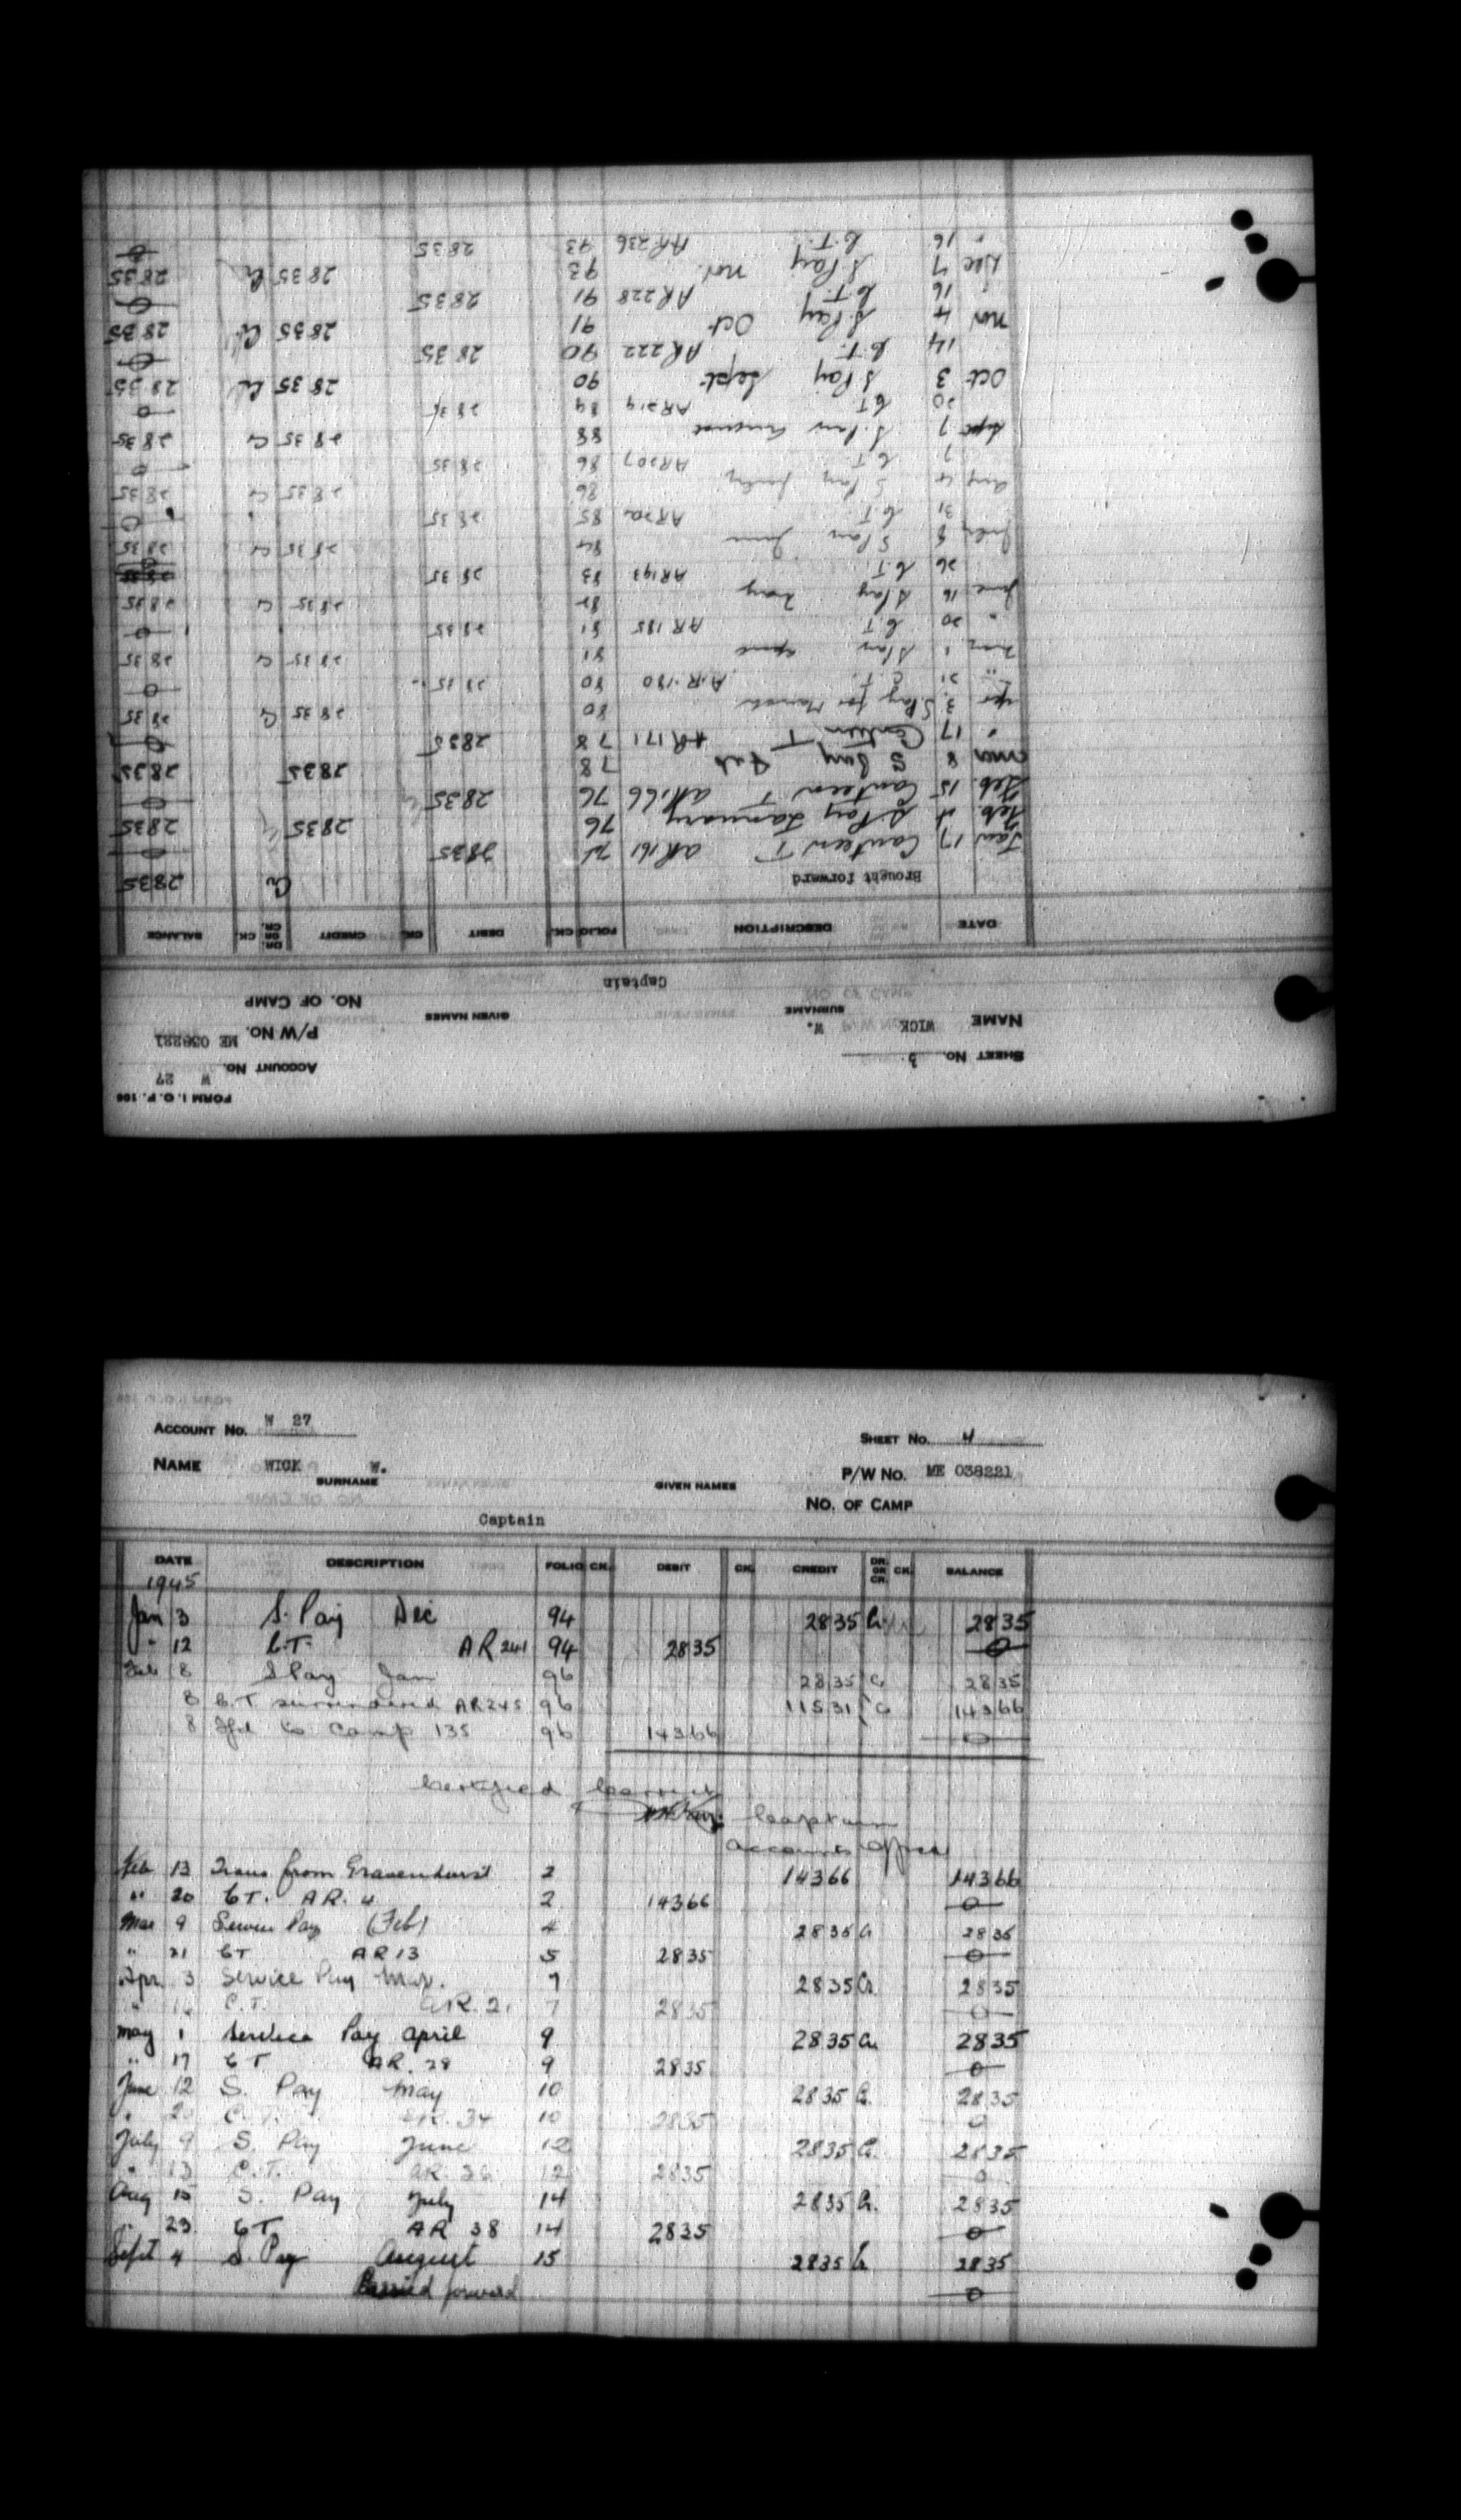 FORM I. O. P. 106
ACCOUNT NO. W 27
SHEET NO. 3
P/W NO. ME 038221
NAME WICK W.
SURNAME GIVEN NAMES
NO. OF CAMP
Captain
DATE DESCRIPTION FOLIO CK. DEBIT CK. CREDIT DR. OR CR. CK. BALANCE
Brought forward Cr 2835
Jan 17 Canteen T AR161 2835 0
Feb. 4 S. Pay January 76 2835 2835
Feb. 15 Canteen T AR166 76 2835 0
Mar 8 S Pay Feb 78 2835 2835
" 17 Canteen T AR171 78 2835 0
Apr 3 S. Pay for March 80 2835 Cr 2835
" 21 C.T. A.R.180 80 2835 0
May 1 S Pay April 81 2835 Cr 2835
" 20 C.T. AR 185 81 2835 0
June 16 S Pay May 82 2835 Cr 2835
26 C.T. AR193 83 2835
July 8 S Pay June 84 2835 Cr 2835
31 C.T. 85 2835 0
Aug 4 S Pay July 86 2835 Cr 2835
7 C.T. AR207 86 2835 0
Sept 7 S. Pay August 88 2835 Cr 2835
20 C.T. AR214 89 2835 0
Oct 3 S Pay Sept 90 2835 Cr 2835
14 C.T. AR222 90 2835 0
Nov 4 S. Pay Oct 91 2835 Cr 2835
" 16 C.T. AR228 91 2835 0
Dec 7 S. Pay Nov. 93 2835 Cr 2835
" 16 C.T. AR236 93 2835 0
ACCOUNT NO. W 27
SHEET NO. 4
NAME WICK W.
P/W NO. ME 038221
SURNAME GIVEN NAMES
NO. OF CAMP
Captain
DATE DESCRIPTION FOLIO CK. DEBIT CK. CREDIT DR. OR CR. CK. BALANCE
1945
Jan 3 S. Pay Dec 94 2835 Cr 2835
" 12 C.T. AR 241 94 2835 0
Feb 8 S Pay Jan 96 2835 Cr 2835
8 C.T surrendered AR245 96 11531 Cr 14366
8 Tfd to Camp 135 96 14366 0
Certified Correct
Captain
Accounts Officer
Feb 13 Trans from Gravenhurst 2 14366 14366
" 20 C.T. AR. 4 2 14366 0
Mar 9 Service Pay (Feb) 4 2835 Cr 2835
" 21 CT AR13 5 2835 0
Apr. 3 Service Pay Mar. 7 2835 Cr. 2835
" C.T. AR. 21 7 2835 0
May 1 Service Pay April 9 2835 Cr. 2835
" 17 CT AR. 28 9 2835 0
June 12 S. Pay May 10 2835 Cr. 2835
" 20 C.T. AR. 34 10 2835 0
July 9 S. Pay June 12 2835 Cr. 2835
" 13 C.T. AR. 36 12 2835 0
Aug 15 S. Pay July 14 2835 Cr. 2835
" 23 CT AR 38 14 2835 0
Sept 4 S. Pay August 15 2835 Cr 2835
Carried forward 0